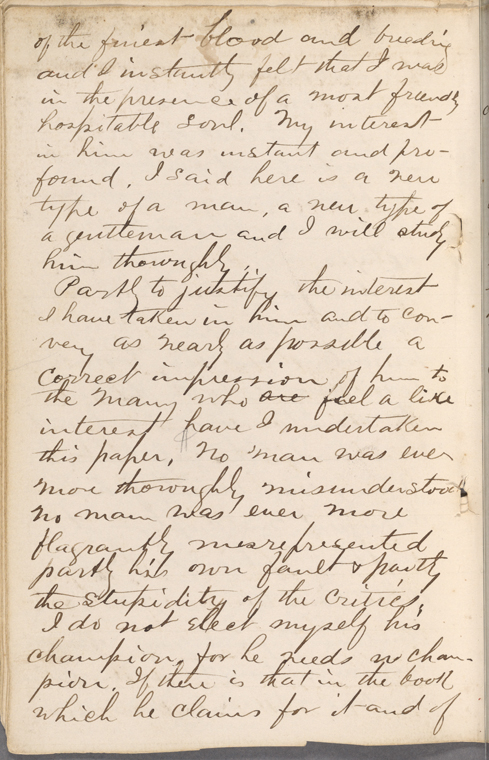 of the finest blood and breeding
and I instantly felt that I was
in the presence of a most friendly
hospitable soul. My interest
in him was instant and pro-
found. I said here is a new
type of a man, a new type of
a gentleman and I will study
him thoroughly."
Partly to justify the interest
I have taken in him and to con-
vey as nearly as possible a
correct impression of him to
the many who are feel a like
interest have I undertaken
this paper. No man was ever
more thoroughly misunderstood
no man was ever more
flagrantly misrepresented
partly his own fault & partly
the stupidity of the critics.
I do not elect myself his
champion, for he needs no cham-
pion. If there is that in the book
which he claims for it and of